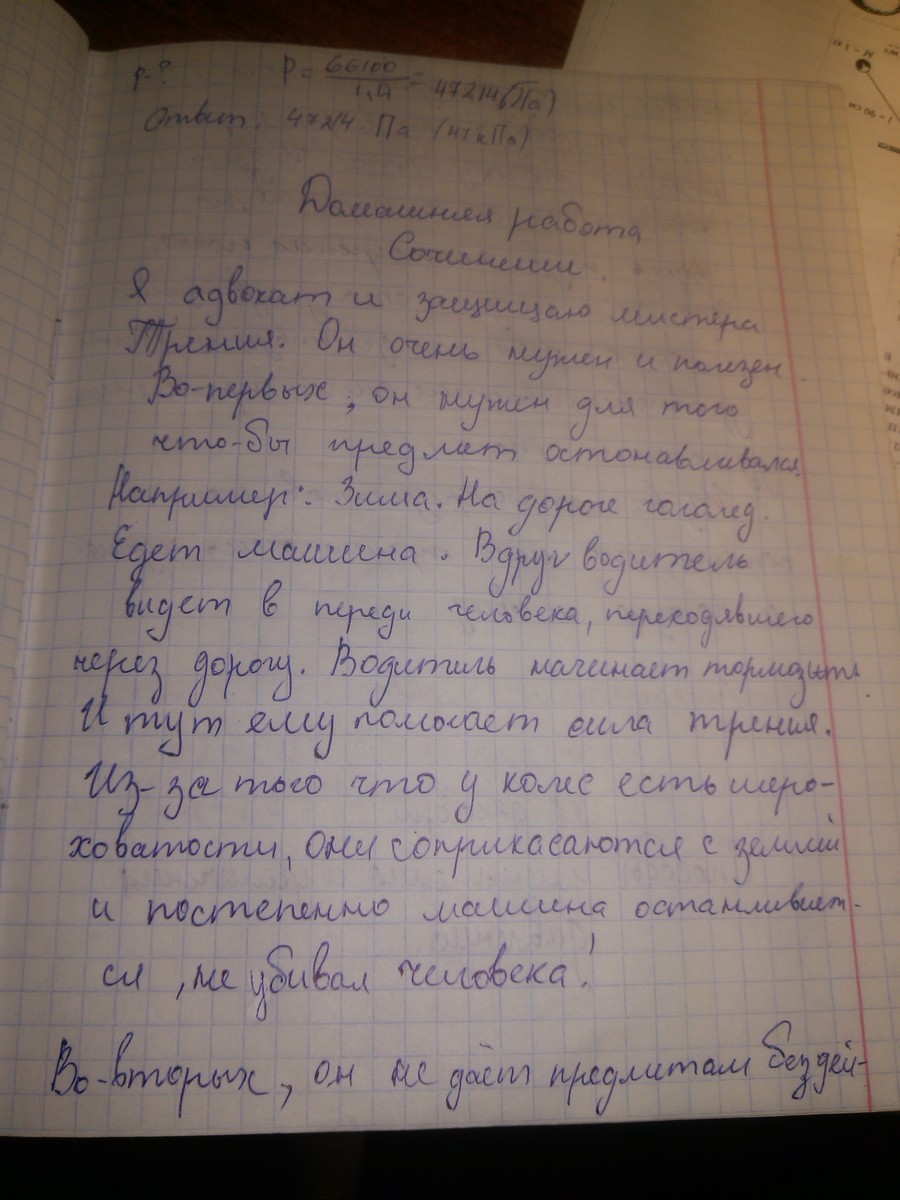 р-? P = 66100 / 1,4 = 47214 (Па)
Ответ: 47214 Па (47 кПа)
Домашняя работа
Сочинение.
Я адвокат и защищаю мистера
Трения. Он очень нужен и полезен.
Во-первых, он нужен для того
что-бы предмет остонавливался.
Например: Зима. На дороге гололед.
Едет машина. Вдруг водитель
видет в переди человека, переходявшего
через дорогу. Водитель начинает тормозить
И тут ему помогает сила трения.
Из-за того что у колес есть шеро-
ховатости, они соприкасаются с землей
и постепенно машина останливает-
ся, не убивая человека!
Во-вторых, он не даёт предметам бездей-